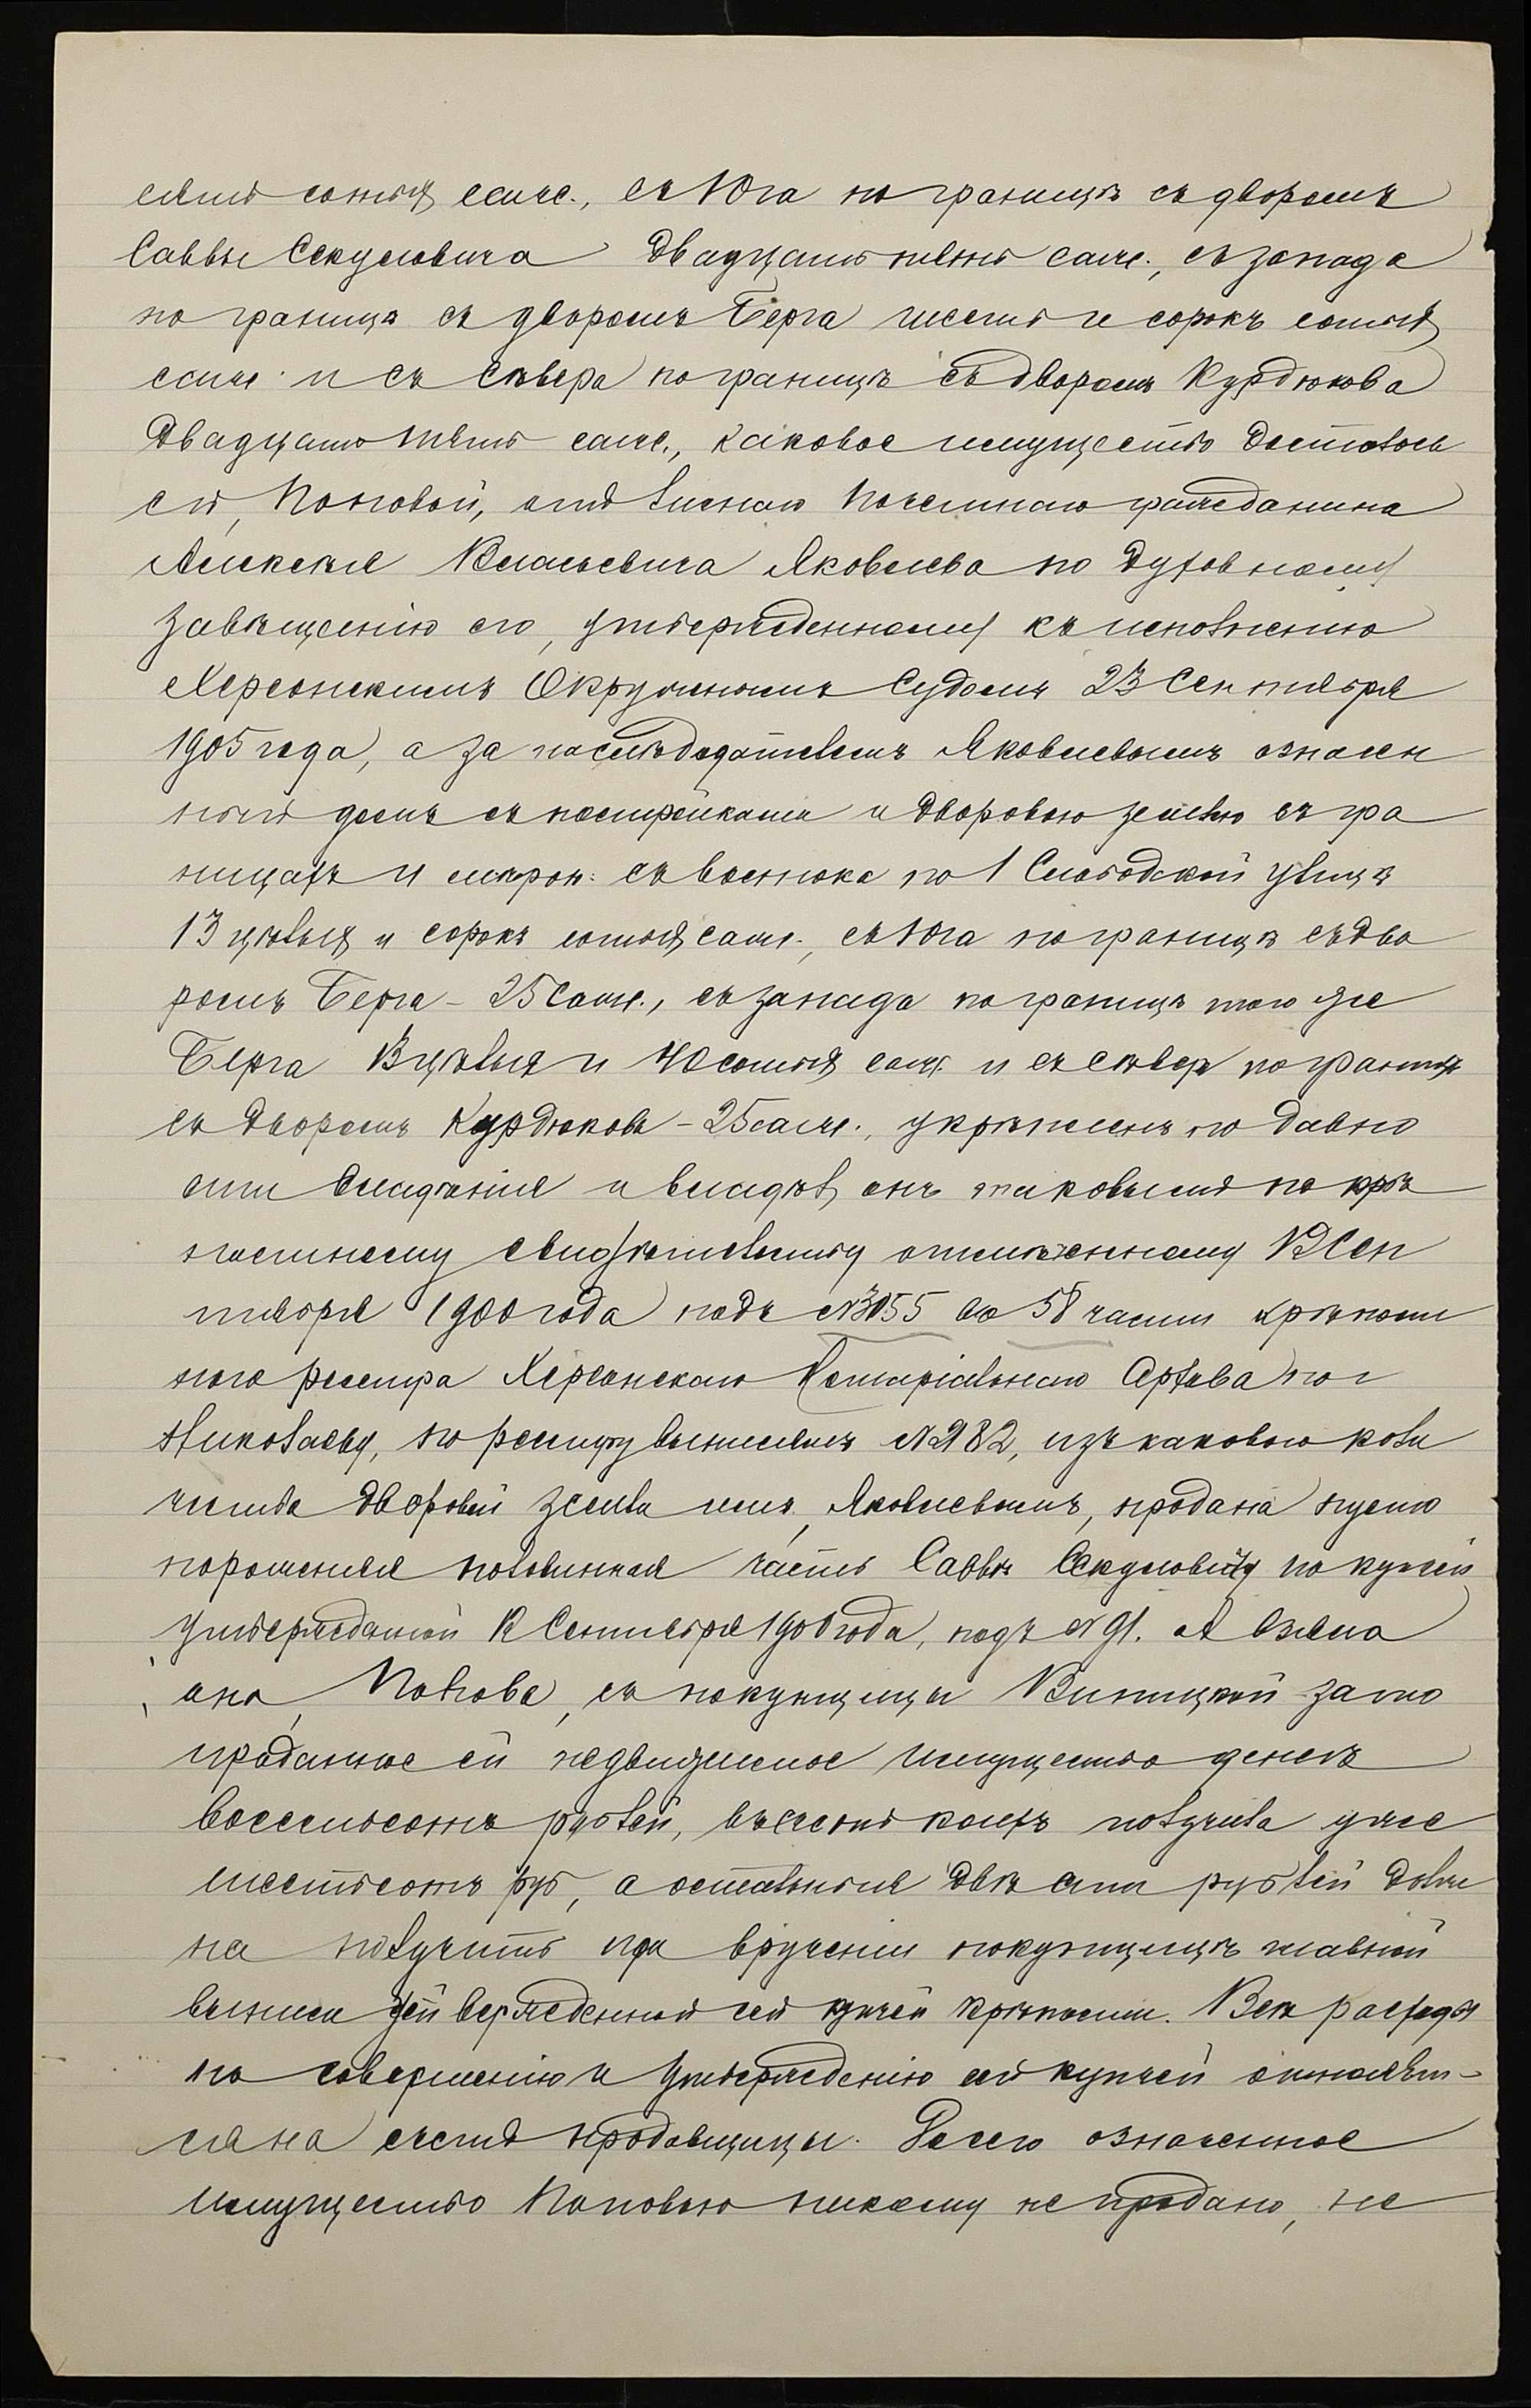 сять сотыхъ саж., съ Юга по границѣ съ дворомъ
Саввы Секуловича двадцать пять саж., съ запада
по границѣ съ дворомъ Берга шесть и сорокъ сотыхъ
саж. и съ Сѣвера по границѣ съ дворомъ Курдюкова
двадцать пять саж., каковое имущество досталось
ей, Поповой, отъ личнаго почетнаго гражданина
Алексѣя Власьевича Яковлева по духовному
завѣщанію его, утвержденному къ исполненію
Херсонскимъ Окружнымъ Судомъ 23 Сентября
1905 года, а за наслѣдодателемъ Яковлевымъ означен
ный домъ съ постройками и дворовою землею въ гра
ницахъ и мѣрою: съ востока по 1 Слободской улицѣ
13 цѣлыхъ и сорокъ сотыхъ саж., съ Юга по границѣ съ дво
ромъ Берга - 25 саж., съ запада по границѣ того же
Берга 13 цѣлыхъ и 40 сотыхъ саж. и съ сѣвера по границѣ
съ дворомъ Курдюкова - 25 саж., укрѣпленъ по давно
сти владѣнія и владѣлъ онъ таковымъ по крѣ
постному свидѣтельству отмѣченному 12 Сен
тября 1900 года подъ № 3055 въ 58 части крѣпост
ного реестра Херсонскаго Нотаріальнаго Архива по г
Николаеву, по реестру выписей № 982, изъ каковаго коли
чества дворовой земли имъ, Яковлевымъ, продана пусто
порожняя половинная часть Саввѣ Секуловичу по купчей
утвержданной 12 Сентября 1900 года, подъ № 91. А взяла
она, Попова, съ покупщицы Виницкой за то
проданное ей недвижимое имущество денегъ
восемьсотъ рублей, въ счетъ коихъ получила уже
шестьсотъ руб, а остальныя двѣсти рублей долж
на получить при врученіи покупщицѣ главной
выписи утвержденной сей купчей крѣпости. Всѣ расходы
по совершенію и утвержденію сей купчей отнесены
на счетъ продавщицы. До сего означенное
имущество Поповою никому не продано, не